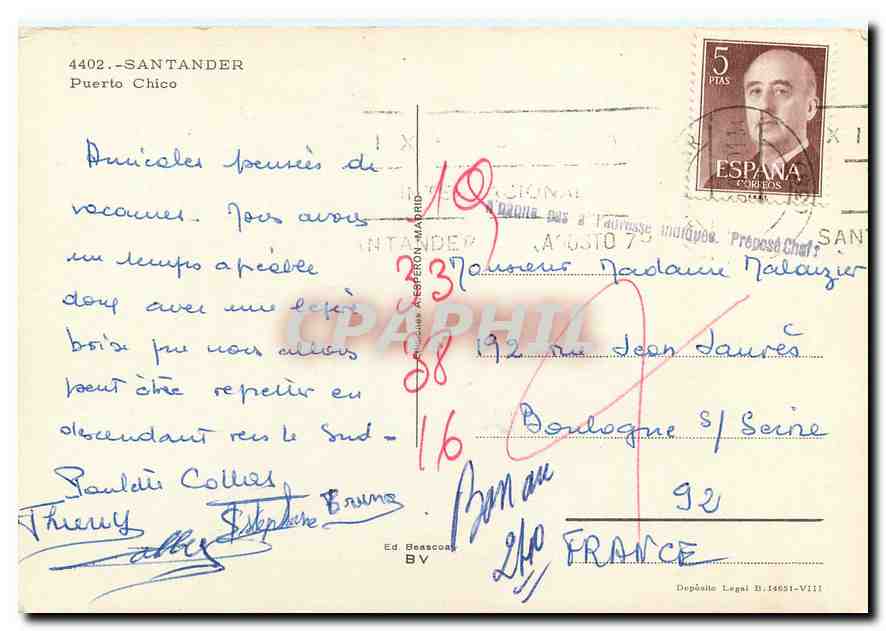 4402.-SANTANDER
Puerto Chico
Amicales pensées de
vacances. Nous avons
un temps agréable
donc avec une légère
que nous allons
peut être regretter en
descendant vers le Sud-
Paulette Collas
Thierry
Stéphane Bruno
Ediciones A. ESPERON-MADRID
Ed. Beascoa,
BV
5
PTAS
ESPAÑA
CORREOS
IX
XI
INTERNACIONAL
SANTANDER AGOSTO 75
SAN
N'habite pas à l'adresse indiquée. Préposé Chef
Monsieur Madame Malaizier
192 rue Jean Jaurès
Boulogne s/ Seine
92
FRANCE
18
33
38
16
2/10
Depósito Legal B.14651-VIII
CPAPHIL